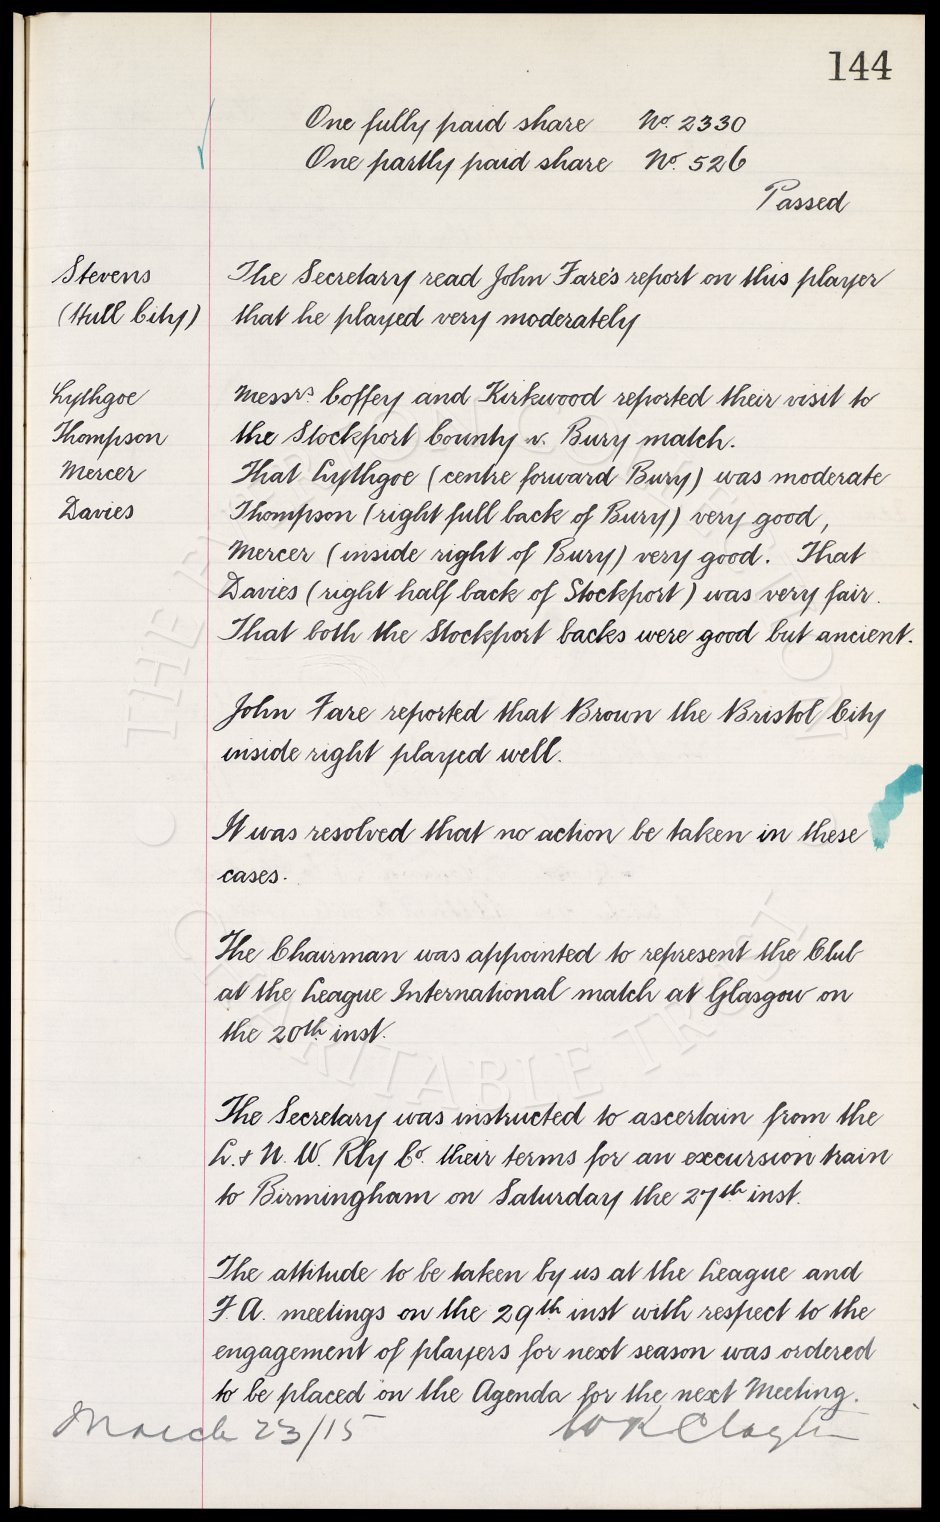 144
One fully paid share No. 2330
One partly paid share No. 526
Passed
Stevens
(Hull City)
The Secretary read John Fare's report on this player
that he played very moderately
Lythgoe
Thompson
Mercer
Davies
Messrs. Coffey and Kirkwood reported their visit to
the Stockport County v. Bury match.
That Lythgoe (centre forward Bury) was moderate
Thompson (right full back of Bury) very good,
Mercer (inside right of Bury) very good. That
Davies (right half back of Stockport) was very fair.
That both the Stockport backs were good but ancient.
John Fare reported that Brown the Bristol City
inside right played well.
It was resolved that no action be taken in these
cases.
The Chairman was appointed to represent the Club
at the League International match at Glasgow on
the 20th inst.
The Secretary was instructed to ascertain from the
L. & N. W. Rly Co. their terms for an excursion train
to Birmingham on Saturday the 27th inst.
The attitude to be taken by us at the League and
F.A. meetings on the 29th inst with respect to the
engagement of players for next season was ordered
to be placed on the Agenda for the next Meeting.
March 23/15 W R Clayton
THE EVERTON COLLECTION
CHARITABLE TRUST